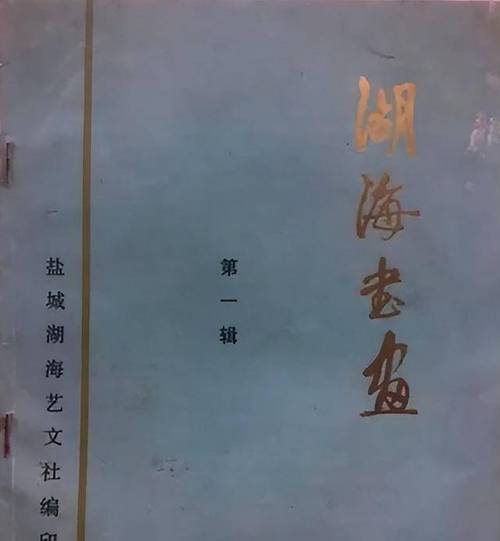 湖海书画
第一辑
盐城湖海艺文社编印